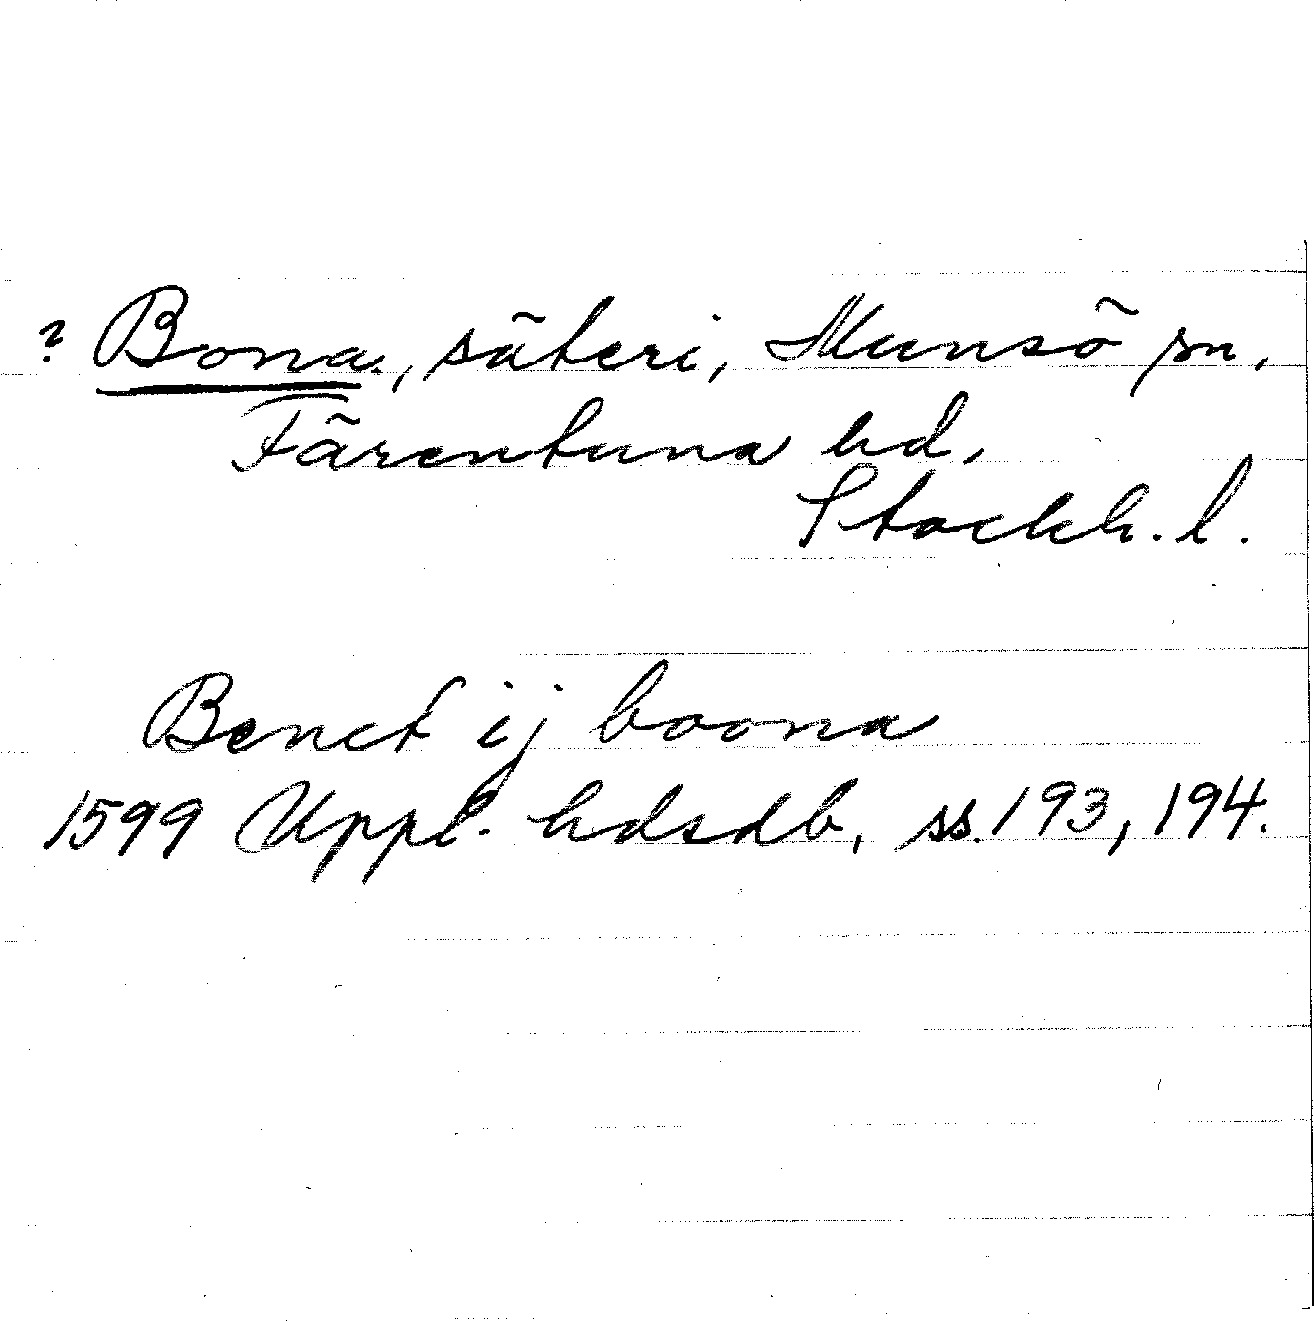 ? Bona, säteri, Munsö sn,
Färentuna hd,
Stockh. l.
Benct ij boona
1599 Uppl. hdsdb, ss. 193, 194.